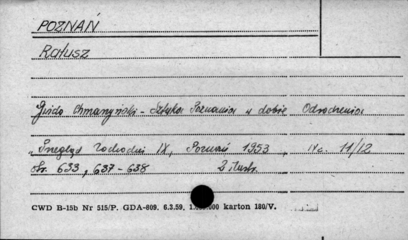 POZNAŃ
Ratusz
Gwido Chmarzyński - Sztuka Poznania w dobie Odrodzenia
"Przegląd Zachodni IX, Poznań 1953, nr. 11/12
str. 633, 637-638 2 ilustr.
CWD B-15b Nr 515/P. GDA-809. 6.3.59. 1.000.000 karton 180/V.